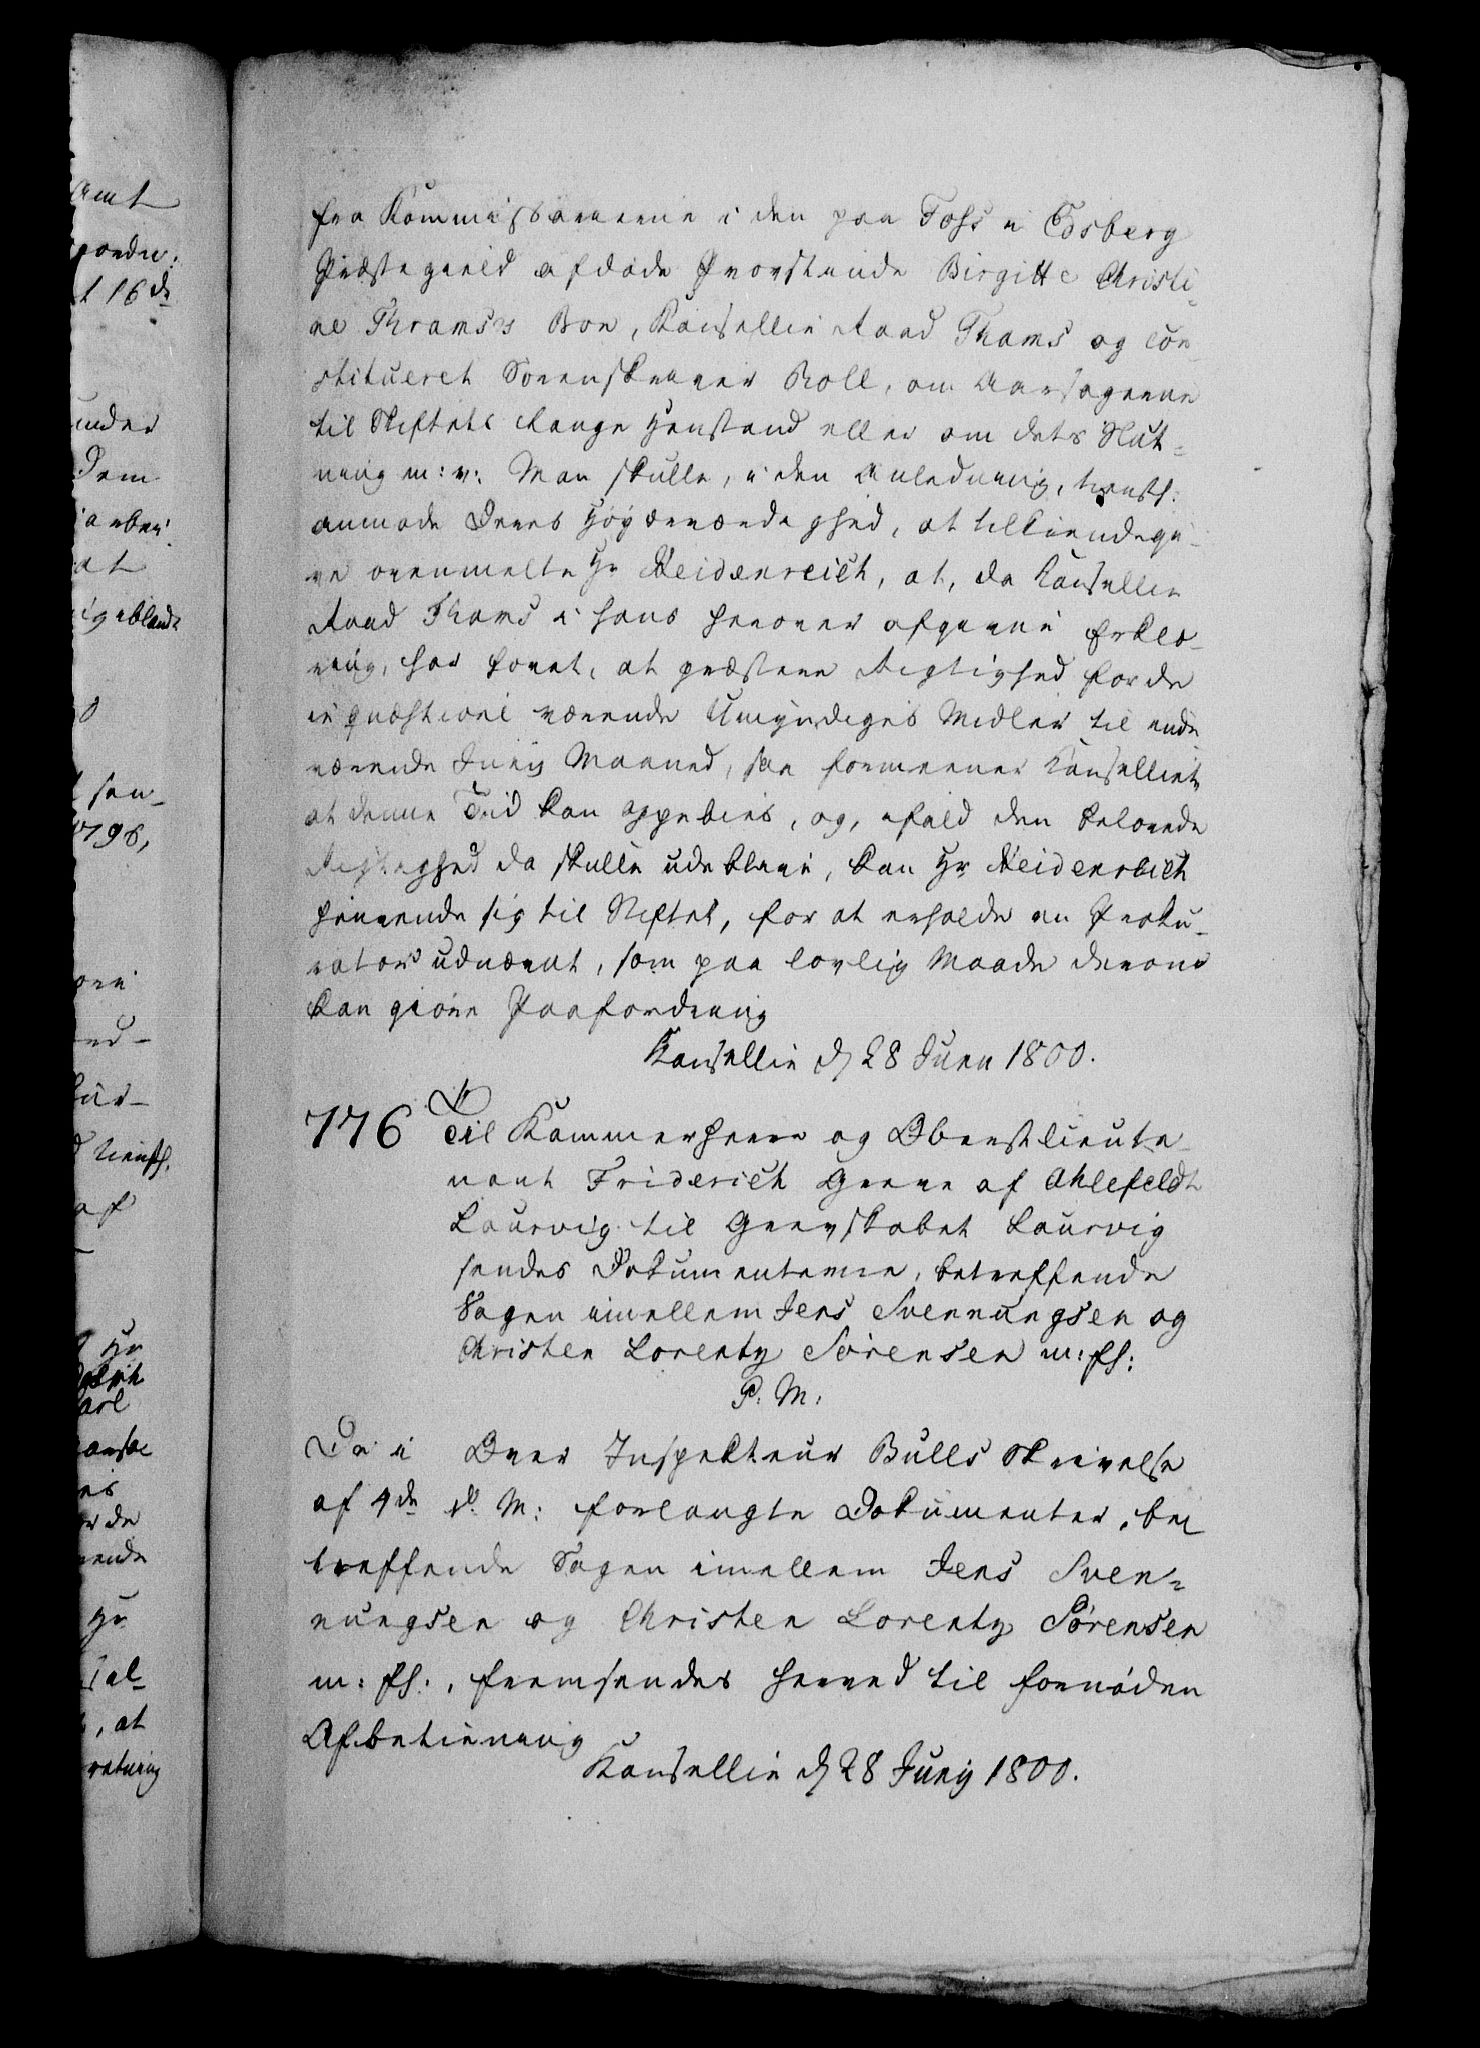 Amt
under
Dem
at
0
af
Hr
, at
fra Kommissairerne i den paa Foss i Edsberg
Præstegield afdøde Provstinde Birgitte Christi-
ne Thramses Boe, Kancellie Raad Thams og con-
stitueret Sorenskriver Roll, om Aarsagerne
til Skiftets lange Henstand eller om dets Slut-
ning m: v: Man skulle, i den Anledning, tienstl:
anmode Deres Høyærværdighed, at tilkiendegi-
ve ovenmelte Hr Heidenreich, at, da Kancellie
Raad Thams i hans herover afgivne Erklæ-
ring, har lovet, at præstere Rigtighed for de
in quæstione værende Umyndiges Midler til inde-
værende Junii Maaned, saa formeener Kancelliet,
at denne Tid kan oppebies, og, ifald den belovede
Rigtighed da skulle udeblive, kan Hr Heidenreich
henvende sig til Stiftet, for at erholde en Proku-
rator udnævnt, som paa lovlig Maade derom
kan giøre Paafordring
Kancellie d 28 Juni 1800.
776 Til Kammerherre og Oberstlieute-
nant Friderich Greve af Ahlefeldt
Laurvig til Grevskabet Laurvig
sendes Dokumenterne, betreffende
Sagen imellem Jens Svennungsen og
Christen Lorentz Sørensen m: fl:
P. M.
De i Over Inspekteur Bulls Skrivelse
af 4de d. M: forlangte Dokumenter, be-
treffende Sagen imellem Jens Sven-
nungsen og Christen Lorentz Sørensen
m: fl:, fremsendes herved til fornøden
Afbetiening
Kancellie d 28 Junij 1800.